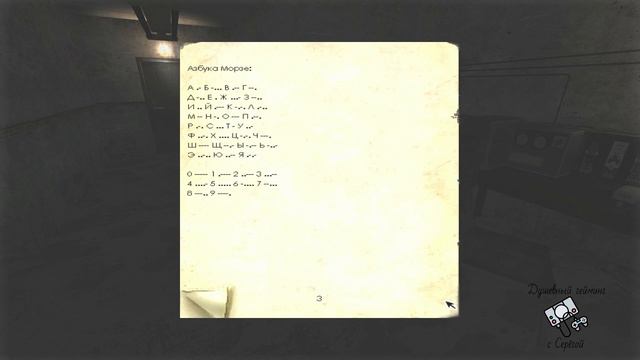 Азбука Морзе:
А .- Б -... В .-- Г --.
Д -.. Е . Ж ...- З --..
И .. Й .--- К -.- Л .-..
М -- Н -. О --- П .--.
Р .-. С ... Т - У ..-
Ф ..-. Х .... Ц -.-. Ч ---.
Ш ---- Щ --.- Ы -.-- Ь -..-
Э ..-.. Ю ..-- Я .-.-
0 ----- 1 .---- 2 ..--- 3 ...--
4 ....- 5 ..... 6 -.... 7 --...
8 ---.. 9 ----.
3
Душевный гейминг
с Серёгой